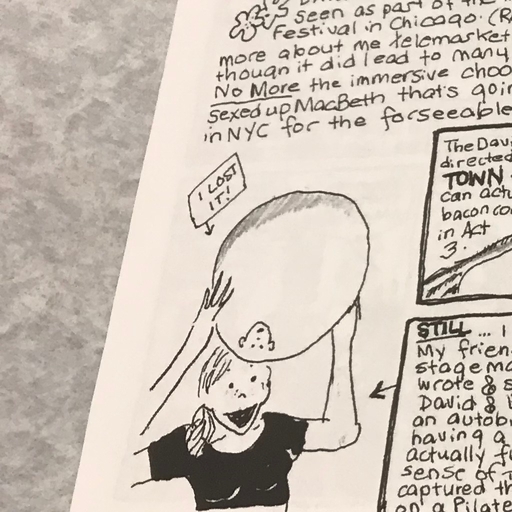 seen as part of the
Festival in Chicago. (R
more about me telemarket
though it did lead to many
No More the immersive choo
sexed up MacBeth that's goin
in NYC for the forseeable
I LOST
IT!
The Dav
directed
TOWN
can actu
bacon co
in Act
3.
STILL ... I
My frien
stage ma
wrote & s
David &
an autob
having a
actually fu
sense of
captured th
on a Pilate